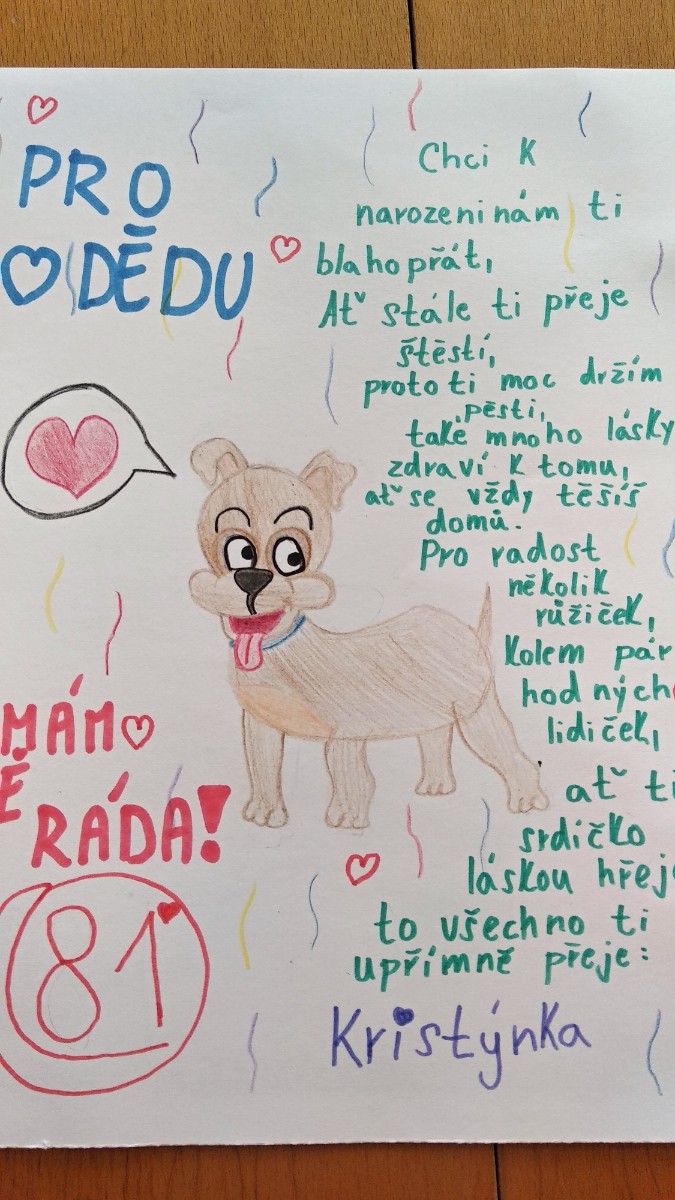 PRO
DĚDU
Chci K
narozeninám ti
blahopřát,
Ať stále ti přeje
štěstí,
proto ti moc držím
pěsti,
také mnoho lásky
zdraví K tomu,
ať se vždy těšíš
domů.
Pro radost
několik
růžiček,
Kolem pár
hodných
lidiček,
ať ti
srdíčko
láskou hřej
to všechno ti
upřímně přeje:
Kristýnka
MÁM
Ě
RÁDA!
81